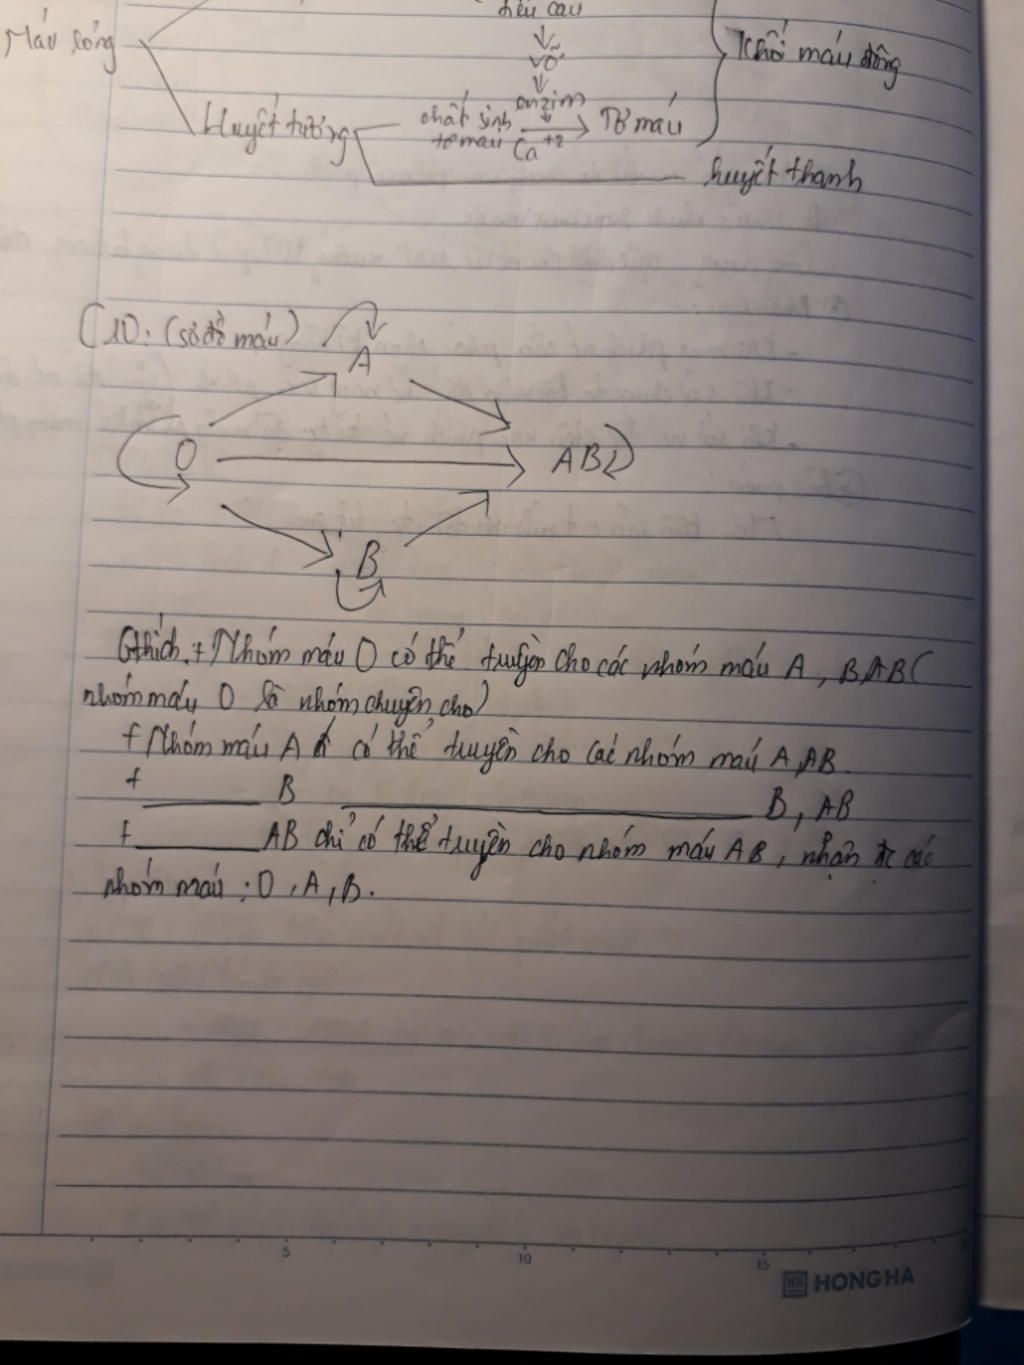 tiểu cầu
Máu lỏng
vỡ
Khối máu đông
enzim
Huyết tương
chất sinh
tơ máu
Ca +2
Tơ máu
huyết thanh
(10: (sơ đồ máu)
A
O
AB
B
Gthích. + Nhóm máu O có thể truyền cho các nhóm máu A, B, AB (
nhóm máu O là nhóm chuyên cho)
+ Nhóm máu A có thể truyền cho các nhóm máu A, AB.
+ ______ B ______ B, AB
+ ______ AB chỉ có thể truyền cho nhóm máu AB, nhận đc các
nhóm máu : O, A, B.
5 10 15
HONG HA